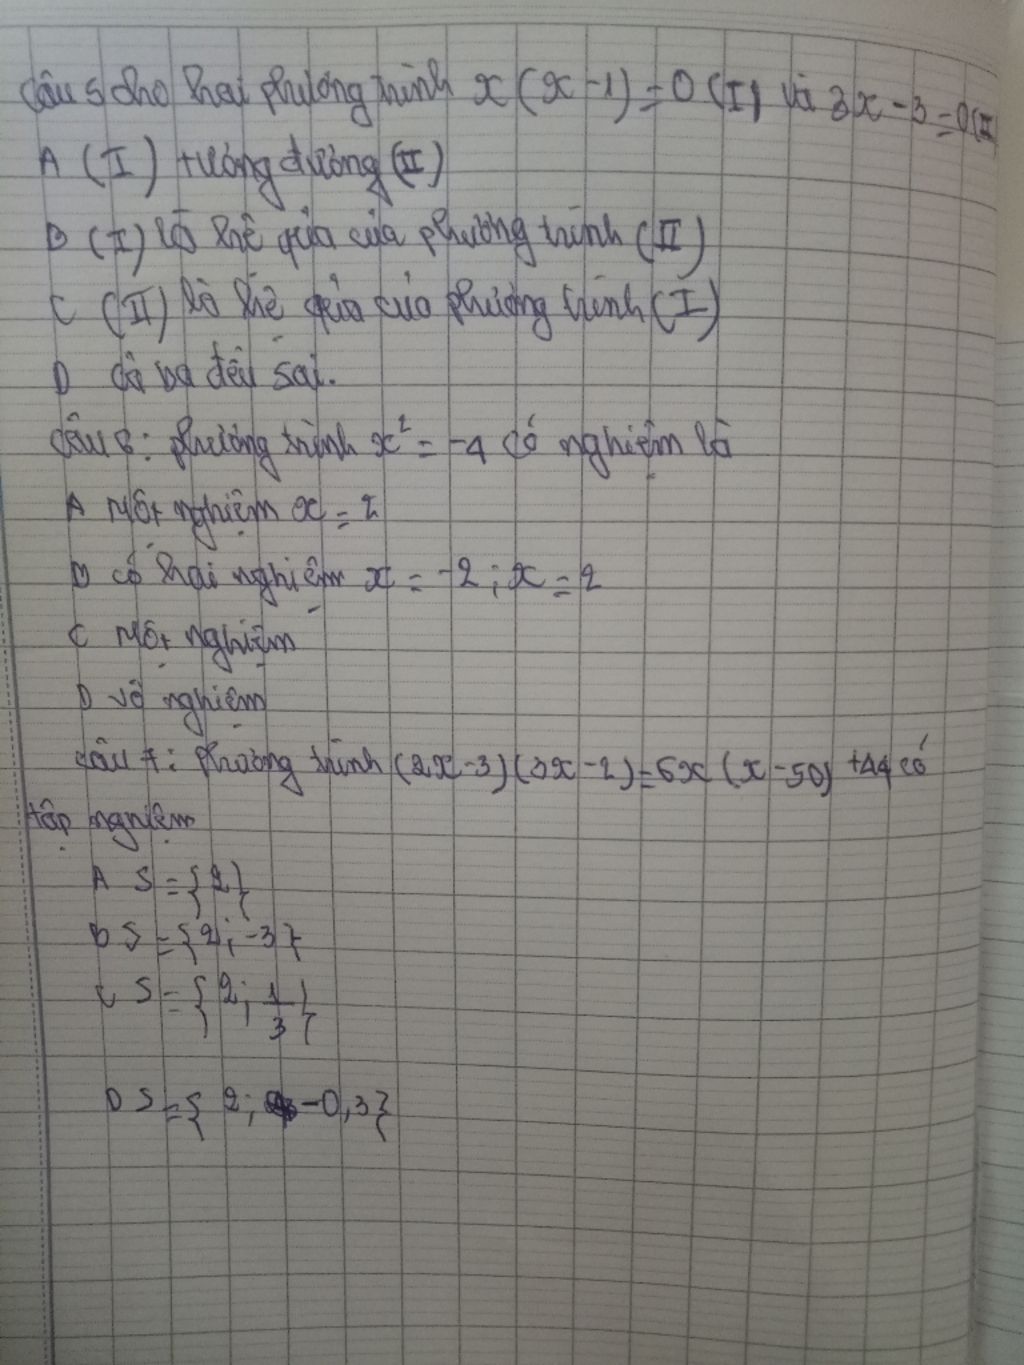 Câu 5 cho hai phương trình x(x-1)=0 (I) và 3x-3=0(II
A (I) tương đương (II)
B (I) là hệ quả của phương trình (II)
C (II) là hệ quả của phương trình (I)
D cả ba đều sai.
Câu 6: phương trình x² = -4 có nghiệm là
A Một nghiệm x = 2
B có hai nghiệm x = -2; x = 2
C Một nghiệm
D vô nghiệm
Câu 7: phương trình (2x-3)(3x-2)=6x(x-50)+44 có
tập nghiệm
A S={2}
B S={2;-3}
C S={2; 1/3}
D S={2; -0,3}